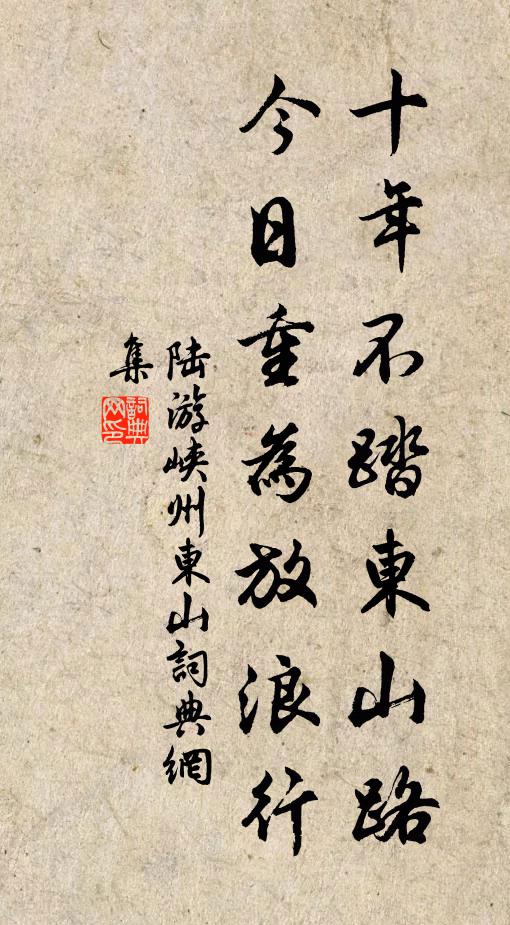 十年不踏東山路
今日重為放浪行
陆游峡州東山詞典網
集
詞典
网印